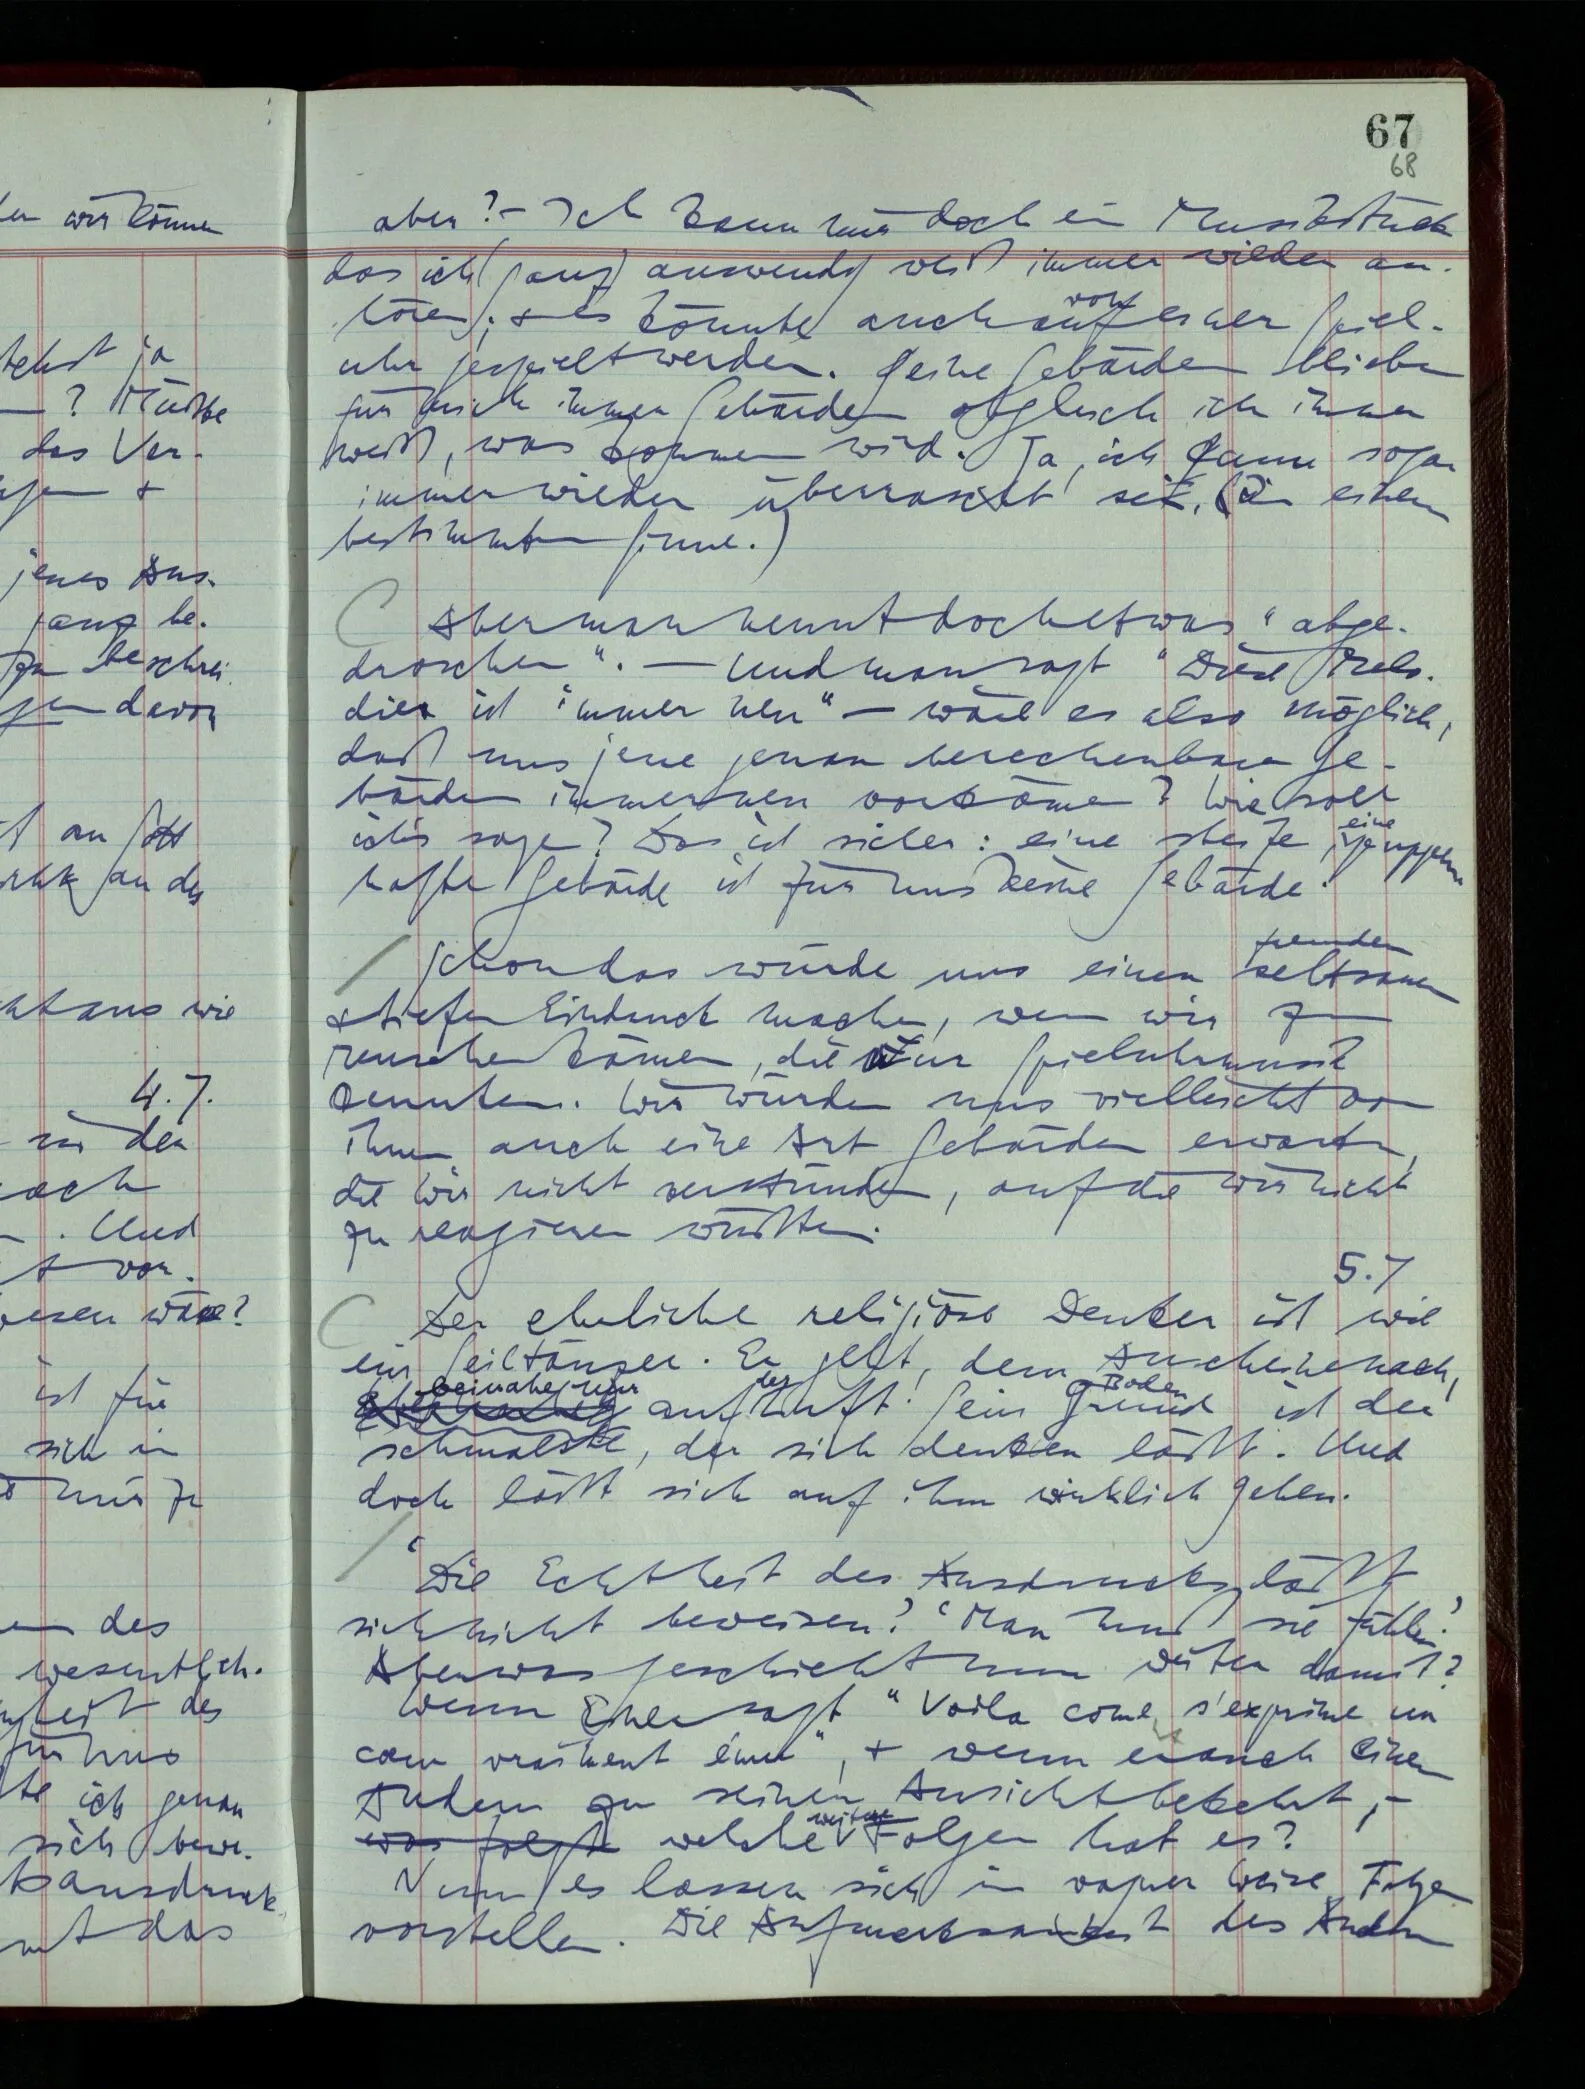 67
68
en wir können
tehst ja
? Müßte
das Ver-
+
jenes Aus-
ganz be-
zu beschrei
davon
t an Gott
an der
aus wie
4.7.
in der
nach
. Und
t vor.
wesen wäre?
ist für
sich in
mir zu
des
wesentlich.
heit des
für uns
te ich genau
sich bewe-
ausdruck
das
aber? – Ich kann mir doch ein Musikstück
das ich (ganz) auswendig weiß immer wieder an-
hören; + es könnte auch auf von einer Spiel-
uhr gespielt werden. Seine Gebärden blieben
für mich immer Gebärden obgleich ich immer
weiß, was kommen wird. Ja, ich kann sogar
immer wieder überrascht sein. (In einem
bestimmten Sinne.)
Aber man nennt doch etwas "abge-
droschen". — Und man sagt "Diese Melo-
die ist immer neu" — wäre es also möglich,
daß uns jene genau berechenbaren Ge-
bärden immer neu vorkämen? Wie soll
ich's sagen? Das ist sicher: eine steife, eine puppen-
hafte Gebärde ist für uns keine Gebärde.
Schon das würde uns einen seltsamen fremden
+ tiefen Eindruck machen, wenn wir zu
Menschen kämen, die nur Spieluhrmusik
kennten. Wir würden uns vielleicht von
ihnen auch eine Art Gebärden erwarten,
die wir nicht verstünden, auf die wir nicht
zu reagieren wüßten.
5.7
Der ehrliche religiöse Denker ist wie
ein Seiltänzer. Er geht, dem Anscheine nach,
beinahe nur auf der Luft. Sein Grund Boden ist der
schmalste, der sich denken läßt. Und
doch läßt sich auf ihm wirklich gehen.
'Die Echtheit des Ausdrucks läßt
sich nicht beweisen.' 'Man muß sie fühlen.'
Aber was geschieht nun weiter damit?
Wenn Einer sagt "Voila come s'exprime un
cœur vraiment émue", + wenn er auch einen
Andern zu seiner Ansicht bekehrt, –
was folgt welche weitere Folgen hat es?
Nun es lassen sich in vager Weise Folgen
vorstellen. Die Aufmerksamkeit des Andern